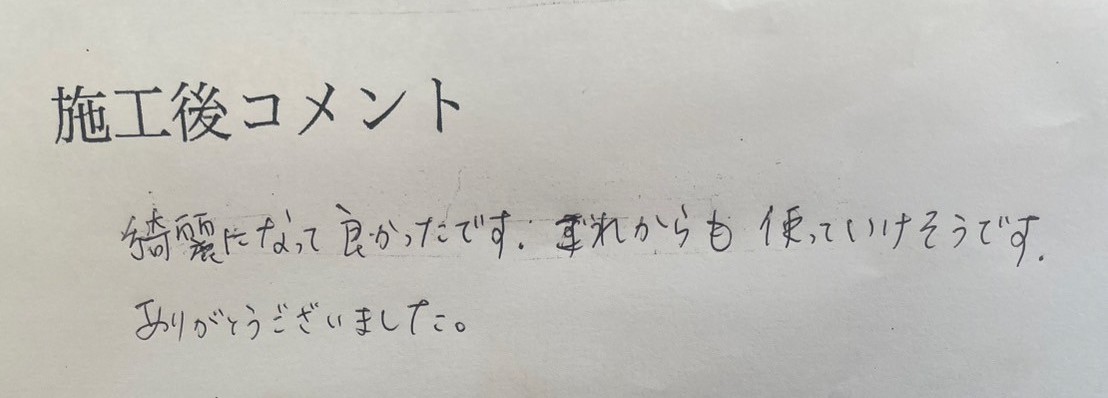 施工後コメント
綺麗になって良かったです. これからも使っていけそうです.
ありがとうございました。